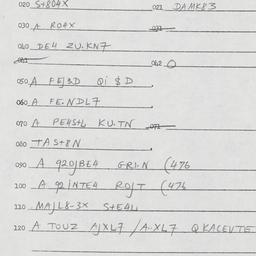 020 S+804X 021 DAMK83
030 A RO4X 031
040 DE4 ZU.KN7
041 042 O
050 A FEJ3D Qi $ D
060 A FE.NDL7
070 A PE4S+L KU.TN 071
080 TAS+8N
090 A 920JBE4 GRI.N (476
100 A 92INTE4 ROJT (476
110 MAJL8-3X S+E4L
120 A TOUZ AJXL7 /A.XL7 QKACEVTE